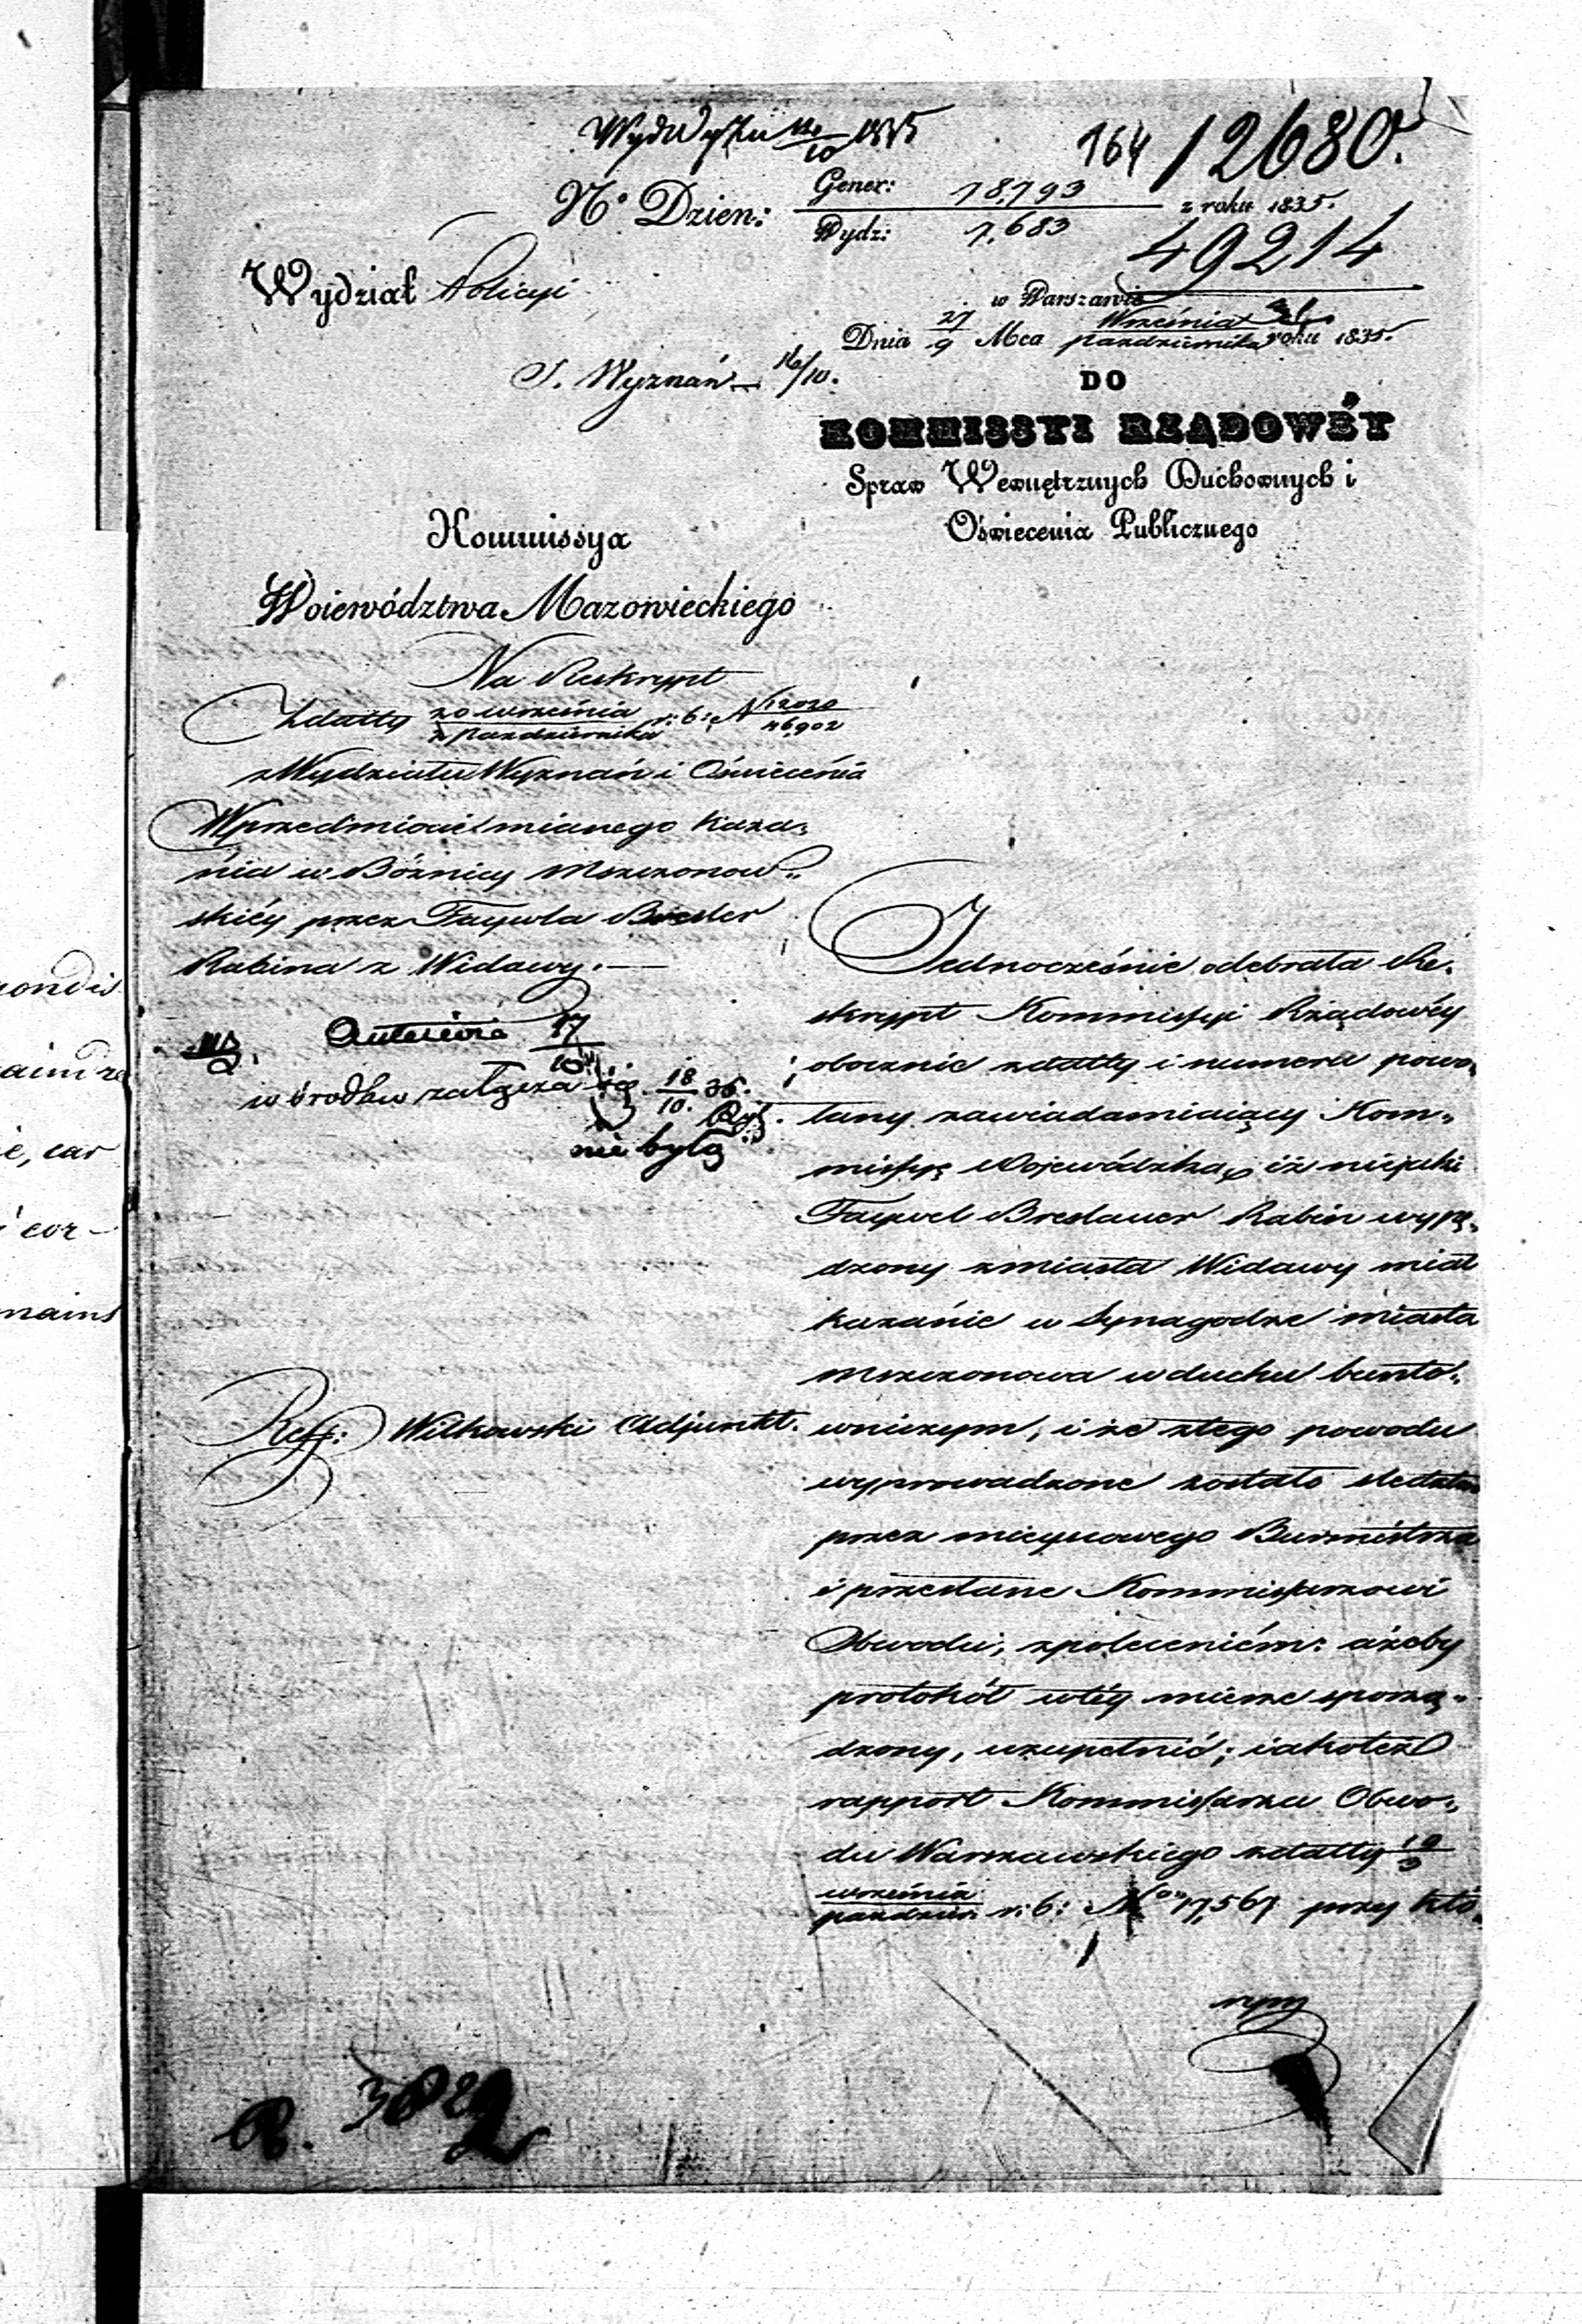 164 12680.
N° Dzien: Gener: 18,793
Wydz: 7,683
z roku 1835.
49214
Wydział Policyi
w Warszawie
Dnia 27/9 Mca Września/Października roku 1835.
S. Wyznań 16/10.
DO
KOMMISSYI RZĄDOWÉY
Spraw Wewnętrznych Duchownych i
Oświecenia Publicznego
Kommissya
Woiewództwa Mazowieckiego
Na Reskrypt
z datty 20 września/2 Października r: b: N 12020/46,902
z Wydziału Wyznań i Oświecenia
W przedmiocie mianego kaza„
nia w Bóżnicy Mszczonow„
skiéy przez Faywla Bresler
Rabina z Widawy.
17/10
w środku załącza się 18/10. 35.
nie były
Reff: Witkowski Adjunkt.
Jednocześnie odebrała Re„
skrypt Kommissyi Rządowéy
obocznie z datty i numeru powo„
łany zawiadamiaiący Kom„
missyę Wojewódzką, iż niejaki
Faywel Breslauer Rabin wypę„
dzony z miasta Widawy miał
kazanie w Synagodze miasta
Mszczonowa w duchu bunto„
wniczym, i że z tego powodu
wyprowadzone zostało śledztwo
przez mieyscowego Burmistrza
i przesłane Kommissarzowi
Obwodu, z poleceniém: ażeby
protokół w téy mierze sporzą„
dzony, uzupełnić; iakoteż
rapport Kommissarza Obwo„
du Warszawskiego z datty 19/3
września/paździer. r: b: N° 17,567 przy któ„
rym
R. 3822